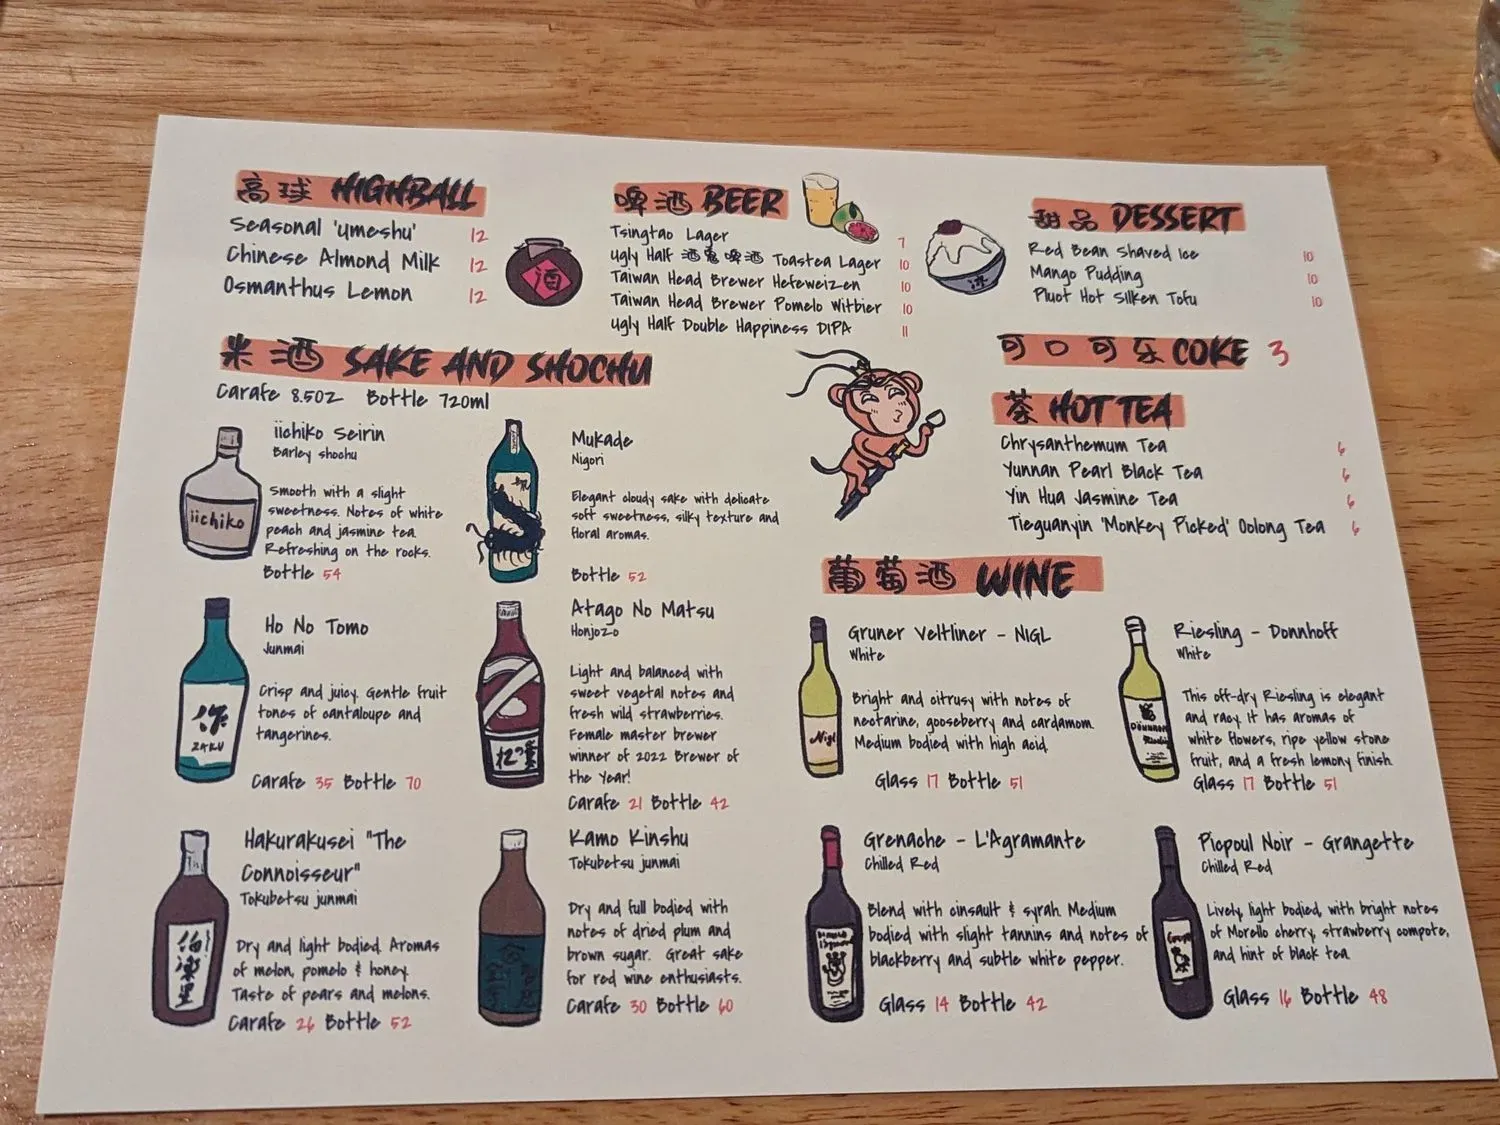 高球 HIGHBALL
Seasonal 'umeshu' 12
Chinese Almond Milk 12
Osmanthus Lemon 12
酒
啤酒 BEER
Tsingtao Lager 7
Ugly Half 酒鬼啤酒 Toastea Lager 10
Taiwan Head Brewer Hefeweizen 10
Taiwan Head Brewer Pomelo Witbier 10
Ugly Half Double Happiness DIPA 11
冰
甜品 DESSERT
Red Bean Shaved Ice 10
Mango Pudding 10
Pluot Hot Silken Tofu 10
可口可乐 COKE 3
茶 HOT TEA
Chrysanthemum Tea 6
Yunnan Pearl Black Tea 6
Yin Hua Jasmine Tea 6
Tieguanyin 'Monkey Picked' Oolong Tea 6
米酒 SAKE AND SHOCHU
Carafe 8.5oz Bottle 720ml
iichiko
iichiko Seirin
Barley shochu
Smooth with a slight
sweetness. Notes of white
peach and jasmine tea.
Refreshing on the rocks.
Bottle 54
Mukade
Nigori
Elegant cloudy sake with delicate
soft sweetness, silky texture and
floral aromas.
Bottle 52
ZAKU
Ho No Tomo
Junmai
Crisp and juicy. Gentle fruit
tones of cantaloupe and
tangerines.
Carafe 35 Bottle 70
Atago No Matsu
Honjozo
Light and balanced with
sweet vegetal notes and
fresh wild strawberries.
Female master brewer
winner of 2022 Brewer of
the Year!
Carafe 21 Bottle 42
伯楽星
Hakurakusei "The
Connoisseur"
Tokubetsu junmai
Dry and light bodied. Aromas
of melon, pomelo & honey.
Taste of pears and melons.
Carafe 26 Bottle 52
Kamo Kinshu
Tokubetsu junmai
Dry and full bodied with
notes of dried plum and
brown sugar. Great sake
for red wine enthusiasts.
Carafe 30 Bottle 60
葡萄酒 WINE
Nigl
Gruner Veltliner - NIGL
White
Bright and citrusy with notes of
nectarine, gooseberry and cardamom.
Medium bodied with high acid.
Glass 17 Bottle 51
Riesling - Donnhoff
White
This off-dry Riesling is elegant
and racy. It has aromas of
white flowers, ripe yellow stone
fruit, and a fresh lemony finish.
Glass 17 Bottle 51
Grenache - L'Agramante
Chilled Red
Blend with cinsault & syrah. Medium
bodied with slight tannins and notes of
blackberry and subtle white pepper.
Glass 14 Bottle 42
Picpoul Noir - Grangette
Chilled Red
Lively, light bodied, with bright notes
of Morello cherry, strawberry compote,
and hint of black tea.
Glass 16 Bottle 48